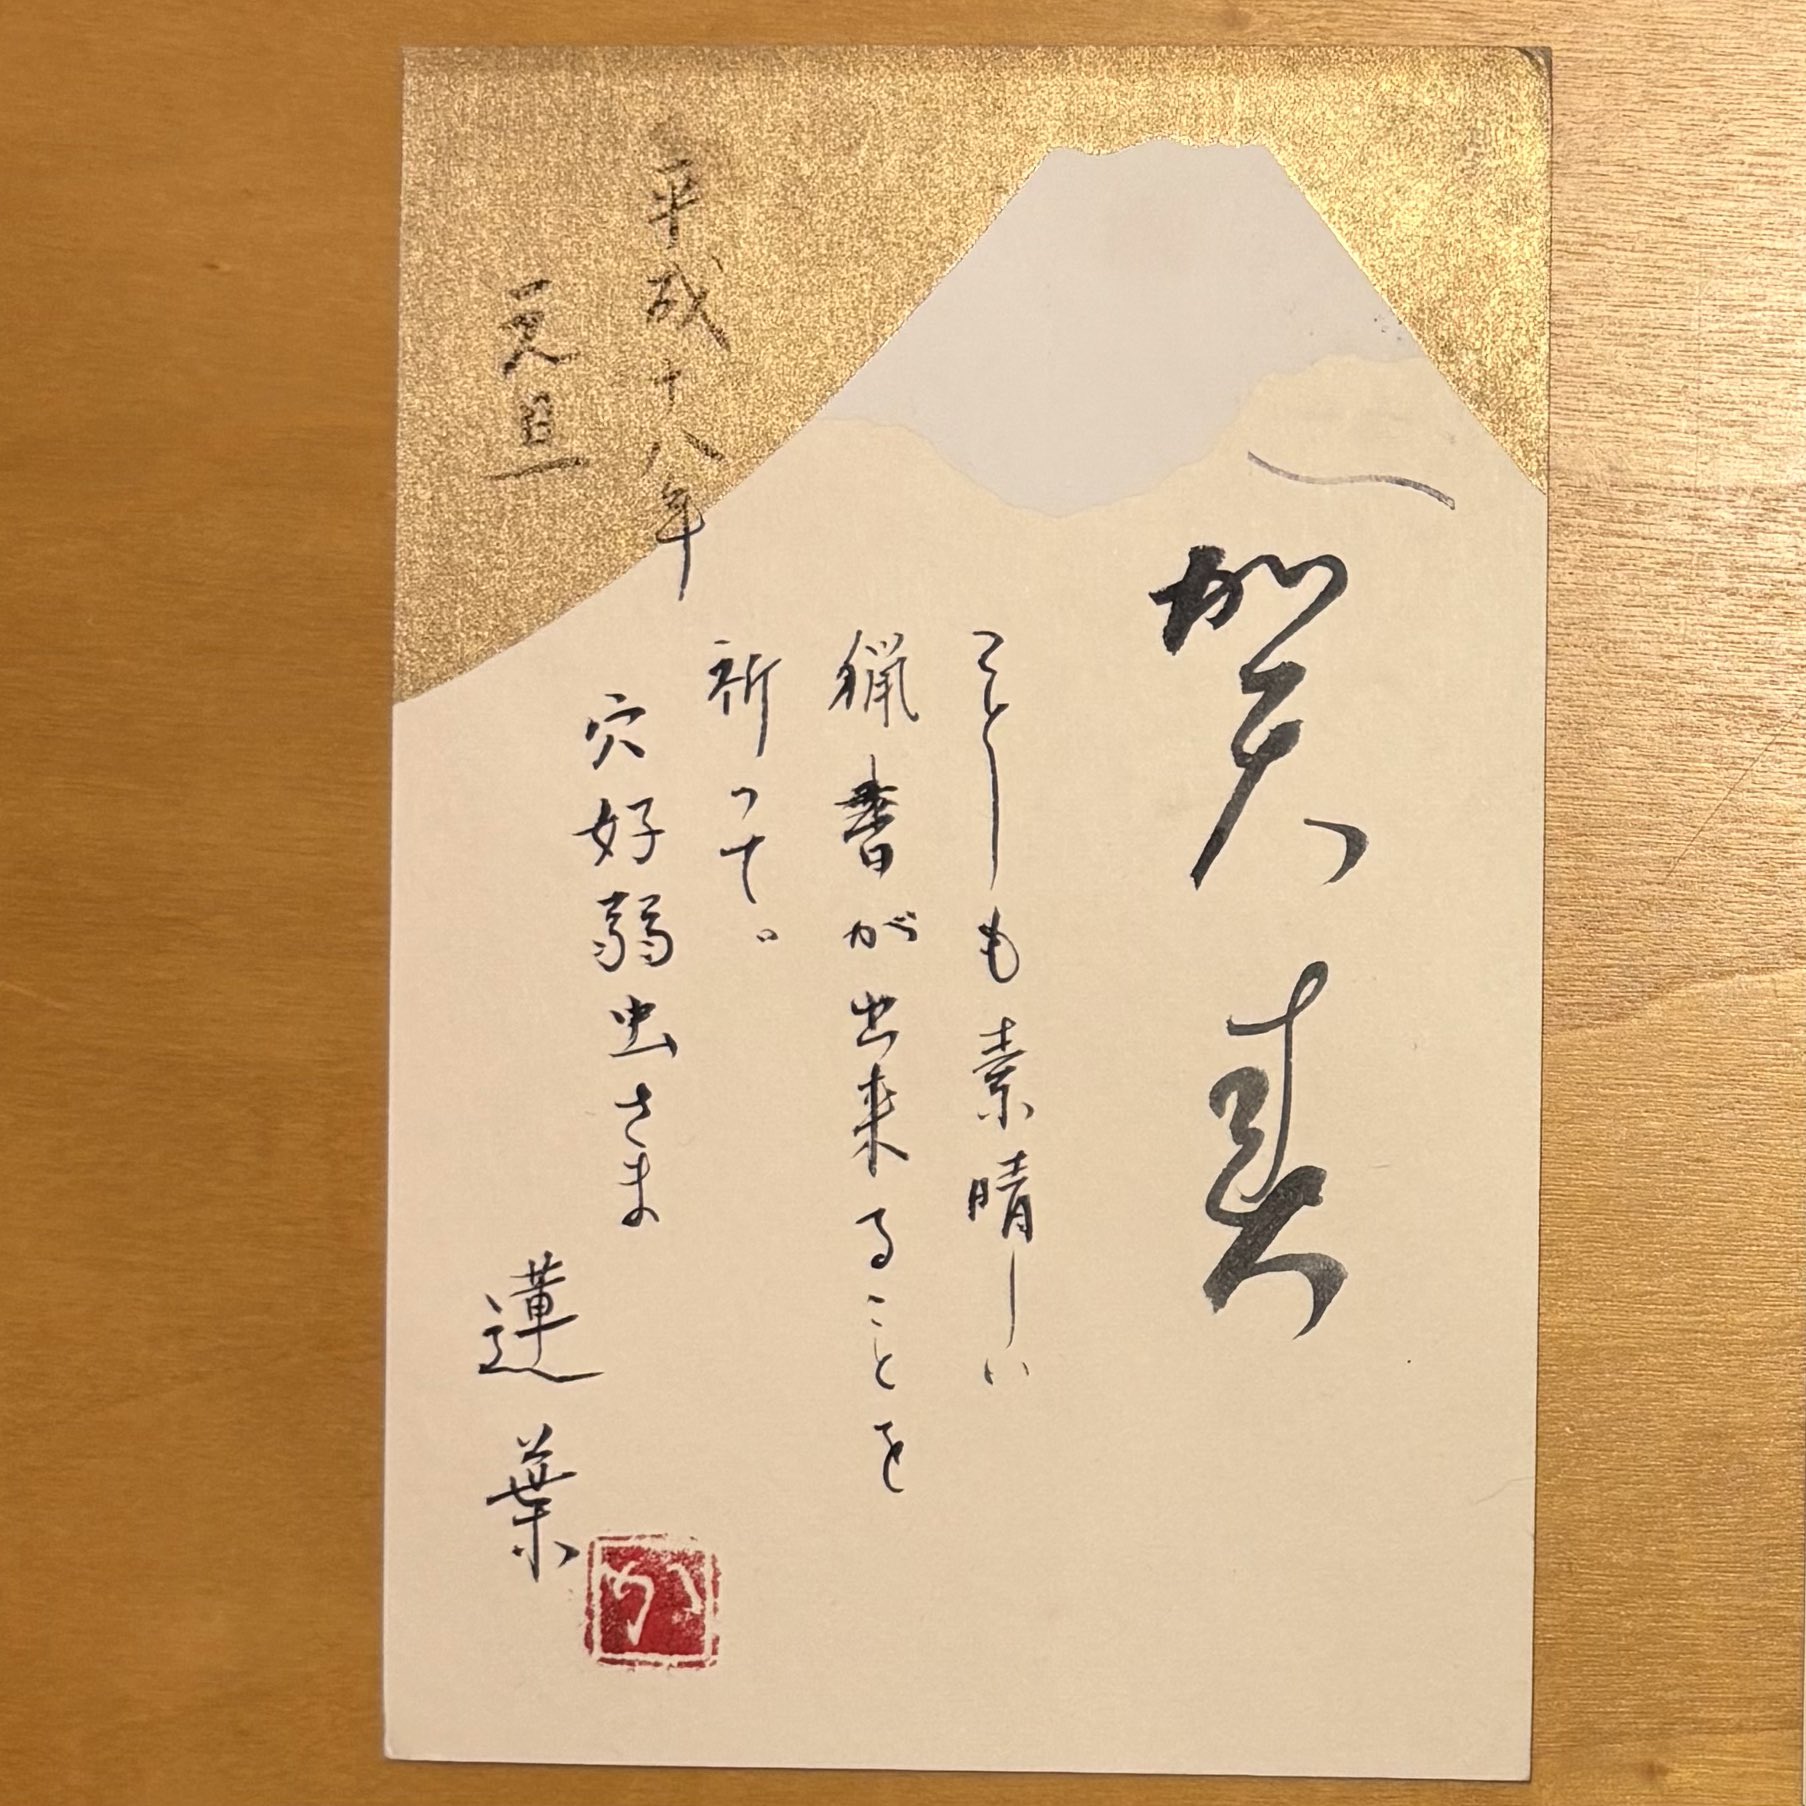 賀春
ことしも素晴しい
猟書が出来ることを
祈って。
穴好弱虫さま
蓮葉
平成十八年
元旦